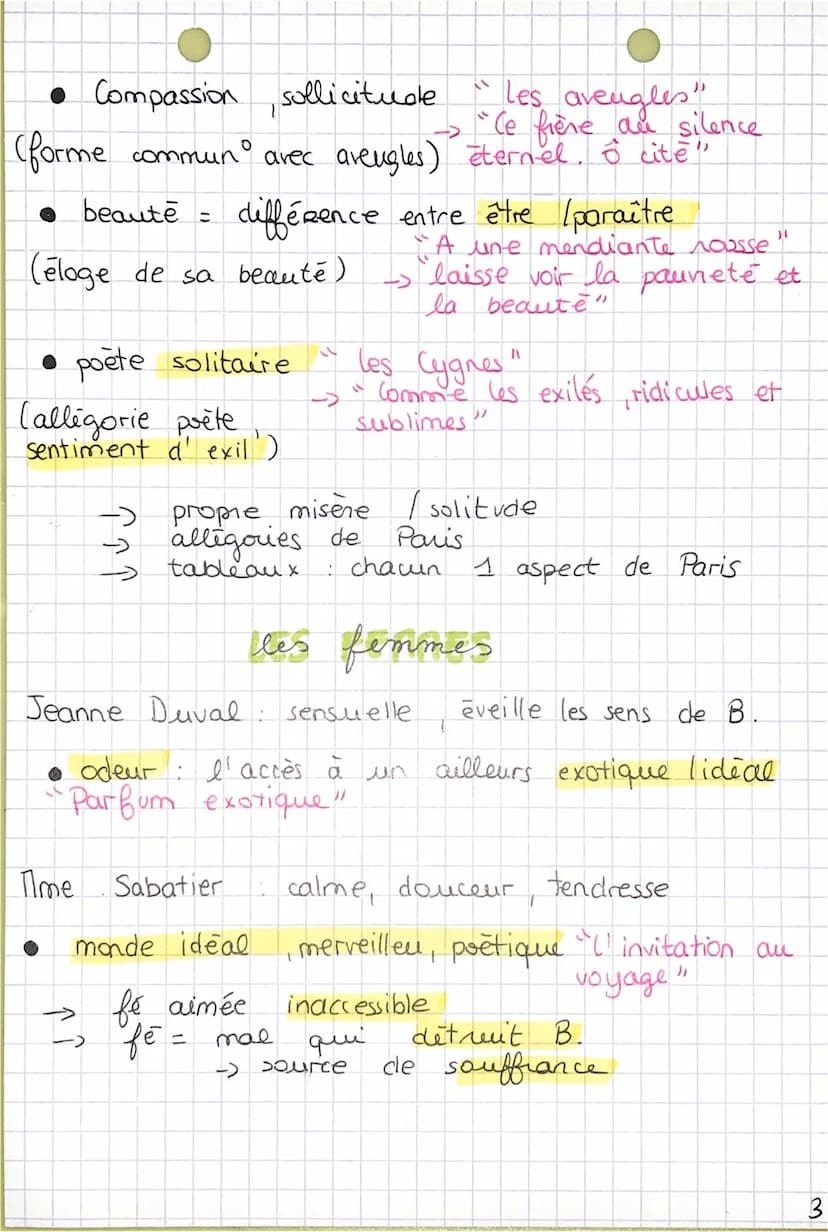 • Compassion , sollicitude " Les aveugles"
→ "Ce frère du silence
(forme commun° avec aveugles) éternel. Ô cité"
• beauté = différence entre être /paraître
"A une mendiante rousse"
(éloge de sa beauté) → "laisse voir la pauvreté et
la beauté"
• poète solitaire " les Cygnes"
→ " Comme les exilés , ridicules et
(allégorie poète , sublimes"
sentiment d'exil )
→ propre misère / solitude
→ allégories de Paris
→ tableaux : chacun 1 aspect de Paris
les femmes
Jeanne Duval : sensuelle , éveille les sens de B.
• odeur : l'accès à un ailleurs exotique /idéal
"Parfum exotique"
Mme . Sabatier : calme, douceur , tendresse
• monde idéal , merveilleu, poétique "L'invitation au
voyage"
→ fé aimée inaccessible
→ fé = mal qui détruit B.
→ source de souffrance
3